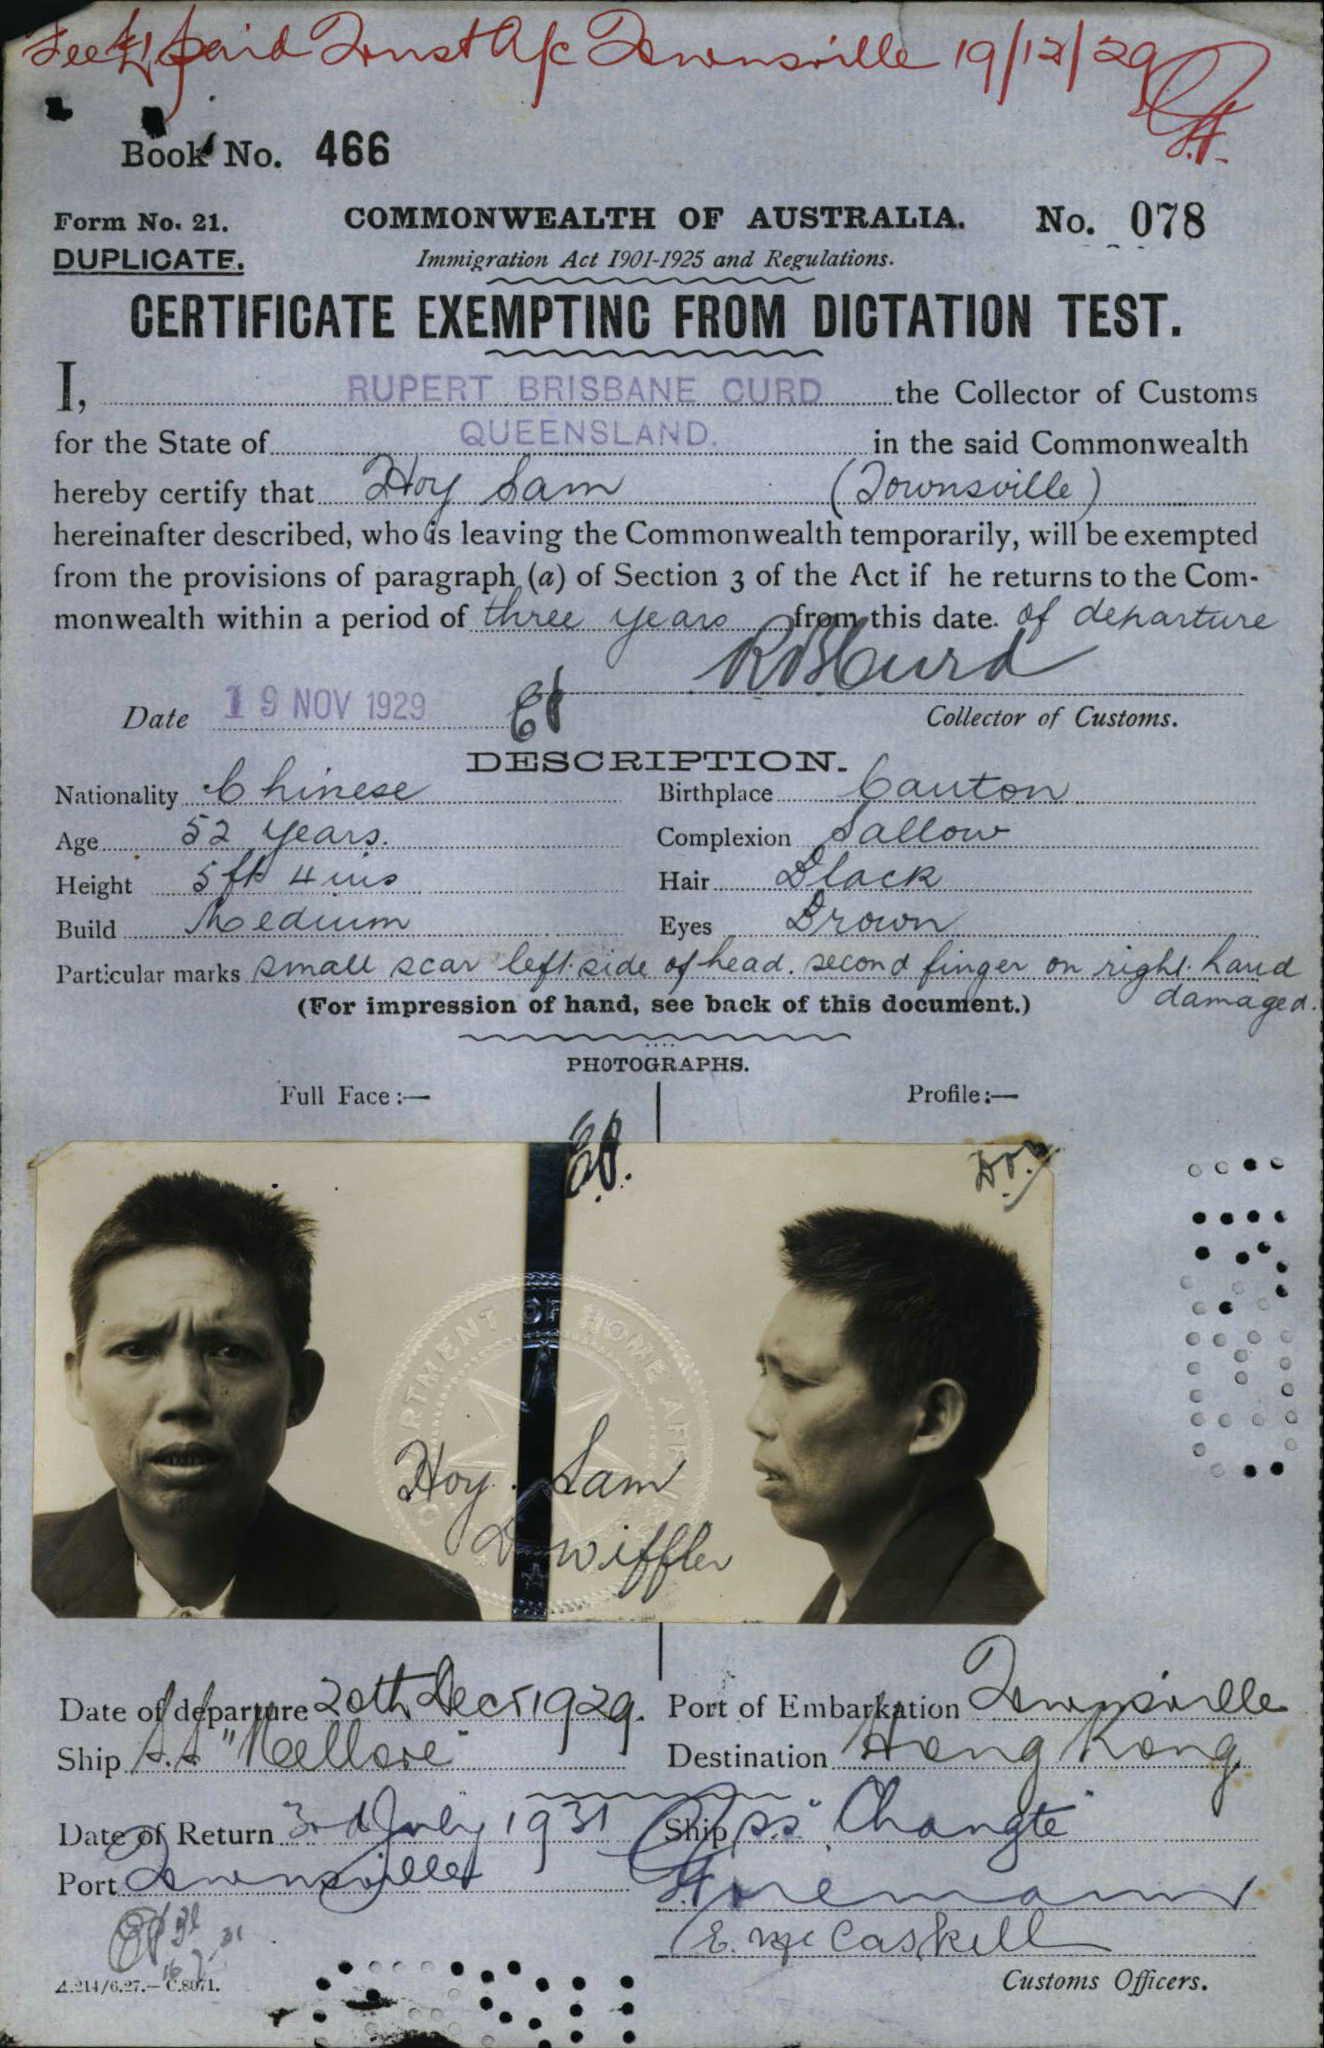 Fee £1 paid Trust A/c Townsville 19/12/29
Book No. 466
Form No. 21.
COMMONWEALTH OF AUSTRALIA.
No. 078
DUPLICATE.
Immigration Act 1901-1925 and Regulations.
CERTIFICATE EXEMPTING FROM DICTATION TEST.
I, RUPERT BRISBANE CURD the Collector of Customs
for the State of QUEENSLAND. in the said Commonwealth
hereby certify that Hoy Sam (Townsville)
hereinafter described, who is leaving the Commonwealth temporarily, will be exempted
from the provisions of paragraph (a) of Section 3 of the Act if he returns to the Com-
monwealth within a period of three years from this date. of departure
R B Curd
Date 19 NOV 1929
Collector of Customs.
DESCRIPTION.
Nationality Chinese Birthplace Canton
Age 52 years. Complexion Sallow
Height 5 ft 4 ins Hair Black
Build Medium Eyes Brown
Particular marks small scar left side of head. second finger on right hand
damaged.
(For impression of hand, see back of this document.)
PHOTOGRAPHS.
Full Face:— Profile:—
DEPARTMENT OF HOME AFF
Hoy Sam
D Wiffler
Date of departure 20th Decr 1929. Port of Embarkation Townsville
Ship S.S "Nellore" Destination Hong Kong
Date of Return 3rd July 1931 Ship SS "Changte"
Port Townsville
E. McCaskill
A.214/6.27.—C.8071.
Customs Officers.